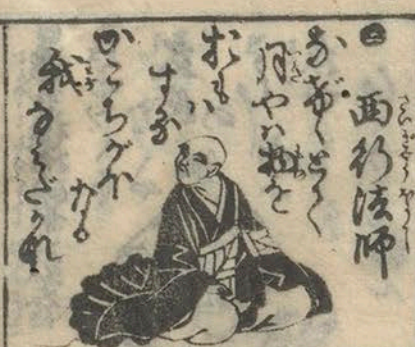 西行法師
なげけとて
月やハ物を
おもハ
する
かこちがほ
なる
我なみだかな